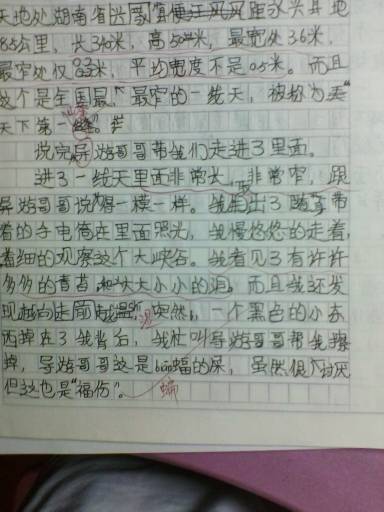 天地处湖南省 距永兴县地
85公里，长340米，高504米，最宽处3.6米，
最窄处仅0.33米，平均宽度不足0.5米。而且
这个是全国最长、最窄的一线天，被称为
天下第一
说完导游哥哥带我们走进了里面。
进了一线天里面非常长，非常窄，跟
导游哥哥说得一模一样。我拿出了随身带
着的手电筒在里面照光，我慢悠悠的走着，
着细的观察这个大峡谷。我看见了有许许
多多的青苔，和大大小小的洞，而且我还发
现越向走 越 突然，一个黑色的小东
西掉在了我背后，我忙叫导游哥哥帮我擦
掉，导游哥哥这是bian蝠的屎，虽然很讨厌
但这也是“福伤”。
湿
蝙